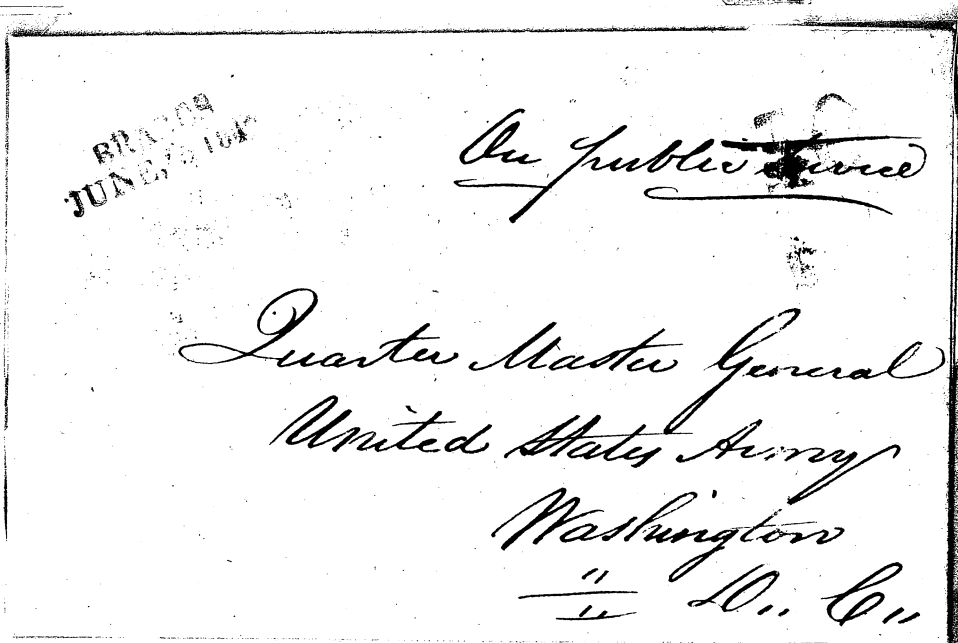 BRAZOS
JUNE
10
On public service
Quarter Master General
United States Army
Washington
" D.. C..